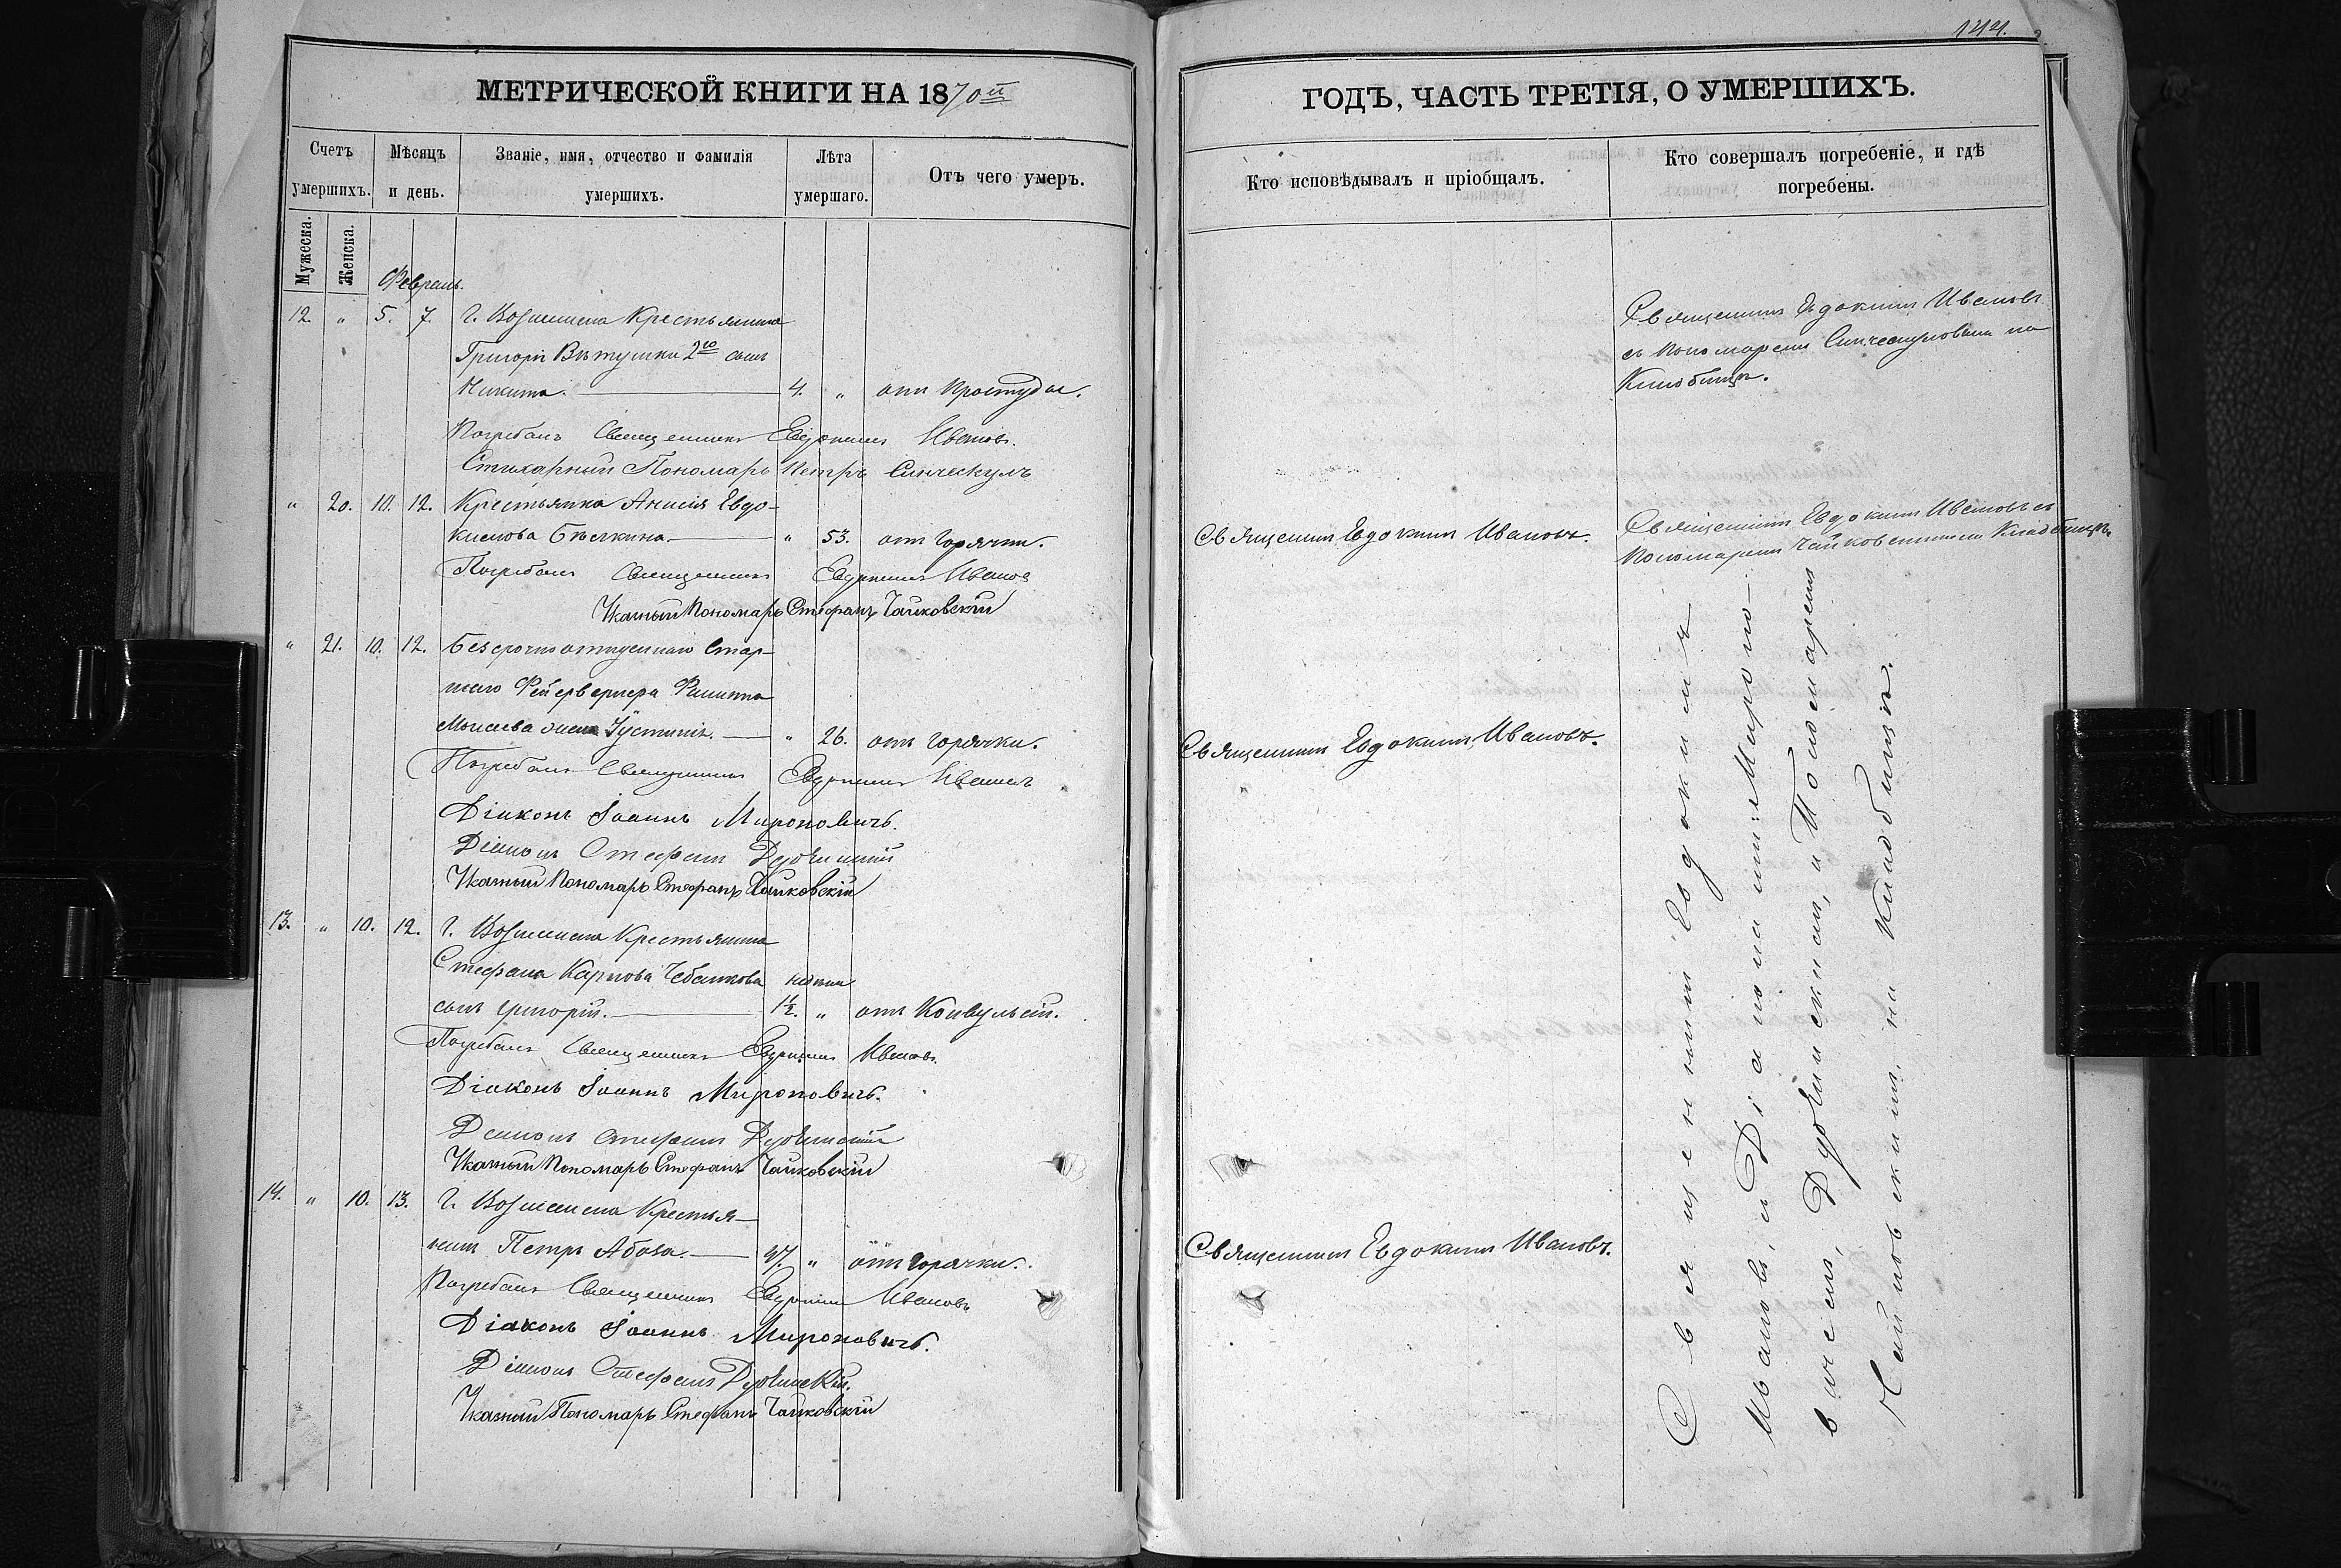 144.
МЕТРИЧЕСКОЙ КНИГИ НА 1870й
Счетъ умершихъ.
Мѣсяцъ и день.
Званіе, имя, отчество и фамилія умершихъ.
Лѣта умершаго.
Отъ чего умеръ.
Мужеска.
Женска.
Февраль.
12. " 5. 7. г. Вознесенска Крестьянина
Григорія Вѣтушки 2го сынъ
Никита. 4. " отъ простуды.
Погребалъ Священникъ Евдокимъ Ивановъ.
Стихарный Пономарь Петръ Синческулъ
" 20. 10. 12. Крестьянка Анисія Евдо-
кимова Бѣлкина. " 53. отъ горячки.
Погребалъ Священникъ Евдокимъ Ивановъ
Указный Пономарь Стефанъ Чайковскій
" 21. 10. 12. Безсрочноотпускнаго Стар-
шаго Фейерверкера Филиппа
Моисеева жена Іустинія. " 26. отъ горячки.
Погребалъ Священникъ Евдокимъ Ивановъ
Діаконъ Іоаннъ Мироновичъ.
Діаконъ Стефанъ
Указный Пономарь Стефанъ Чайковскій
13. " 10. 12. г. Вознесенска Крестьянина
Стефана Карпова Чебанкова
сынъ Григорій. 1½. " отъ Конвульсій.
Погребалъ Священникъ Евдокимъ Ивановъ.
Діаконъ Іоаннъ Мироновичъ.
Діаконъ Стефанъ
Указный Пономарь Стефанъ Чайковскій
14. " 10. 13. г. Вознесенска Крестья-
нинъ Петръ Абоза. 47. " отъ горячки.
Погребалъ Священникъ Евдокимъ Ивановъ
Діаконъ Іоаннъ Мироновичъ.
Діаконъ Стефанъ
Указный Пономарь Стефанъ Чайковскій
ГОДЪ, ЧАСТЬ ТРЕТІЯ, О УМЕРШИХЪ.
Кто исповѣдывалъ и пріобщалъ.
Кто совершалъ погребеніе, и гдѣ погребены.
Священникъ Евдокимъ Ивановъ
съ Пономаремъ Синческуловымъ на
Кладбищѣ.
Священникъ Евдокимъ Ивановъ.
Священникъ Евдокимъ Ивановъ съ
Пономаремъ Чайковскимъ на Кладбищѣ.
Священникъ Евдокимъ Ивановъ.
Священникъ Евдокимъ Ивановъ.
Священникъ Евдокимъ
Ивановъ, и Діаконами: Мироно-
вичемъ, и Пономаремъ
Чайковскимъ, на Кладбищѣ.